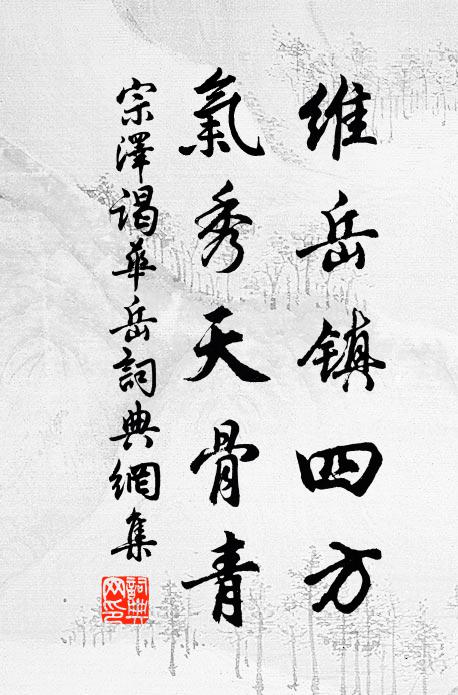 維岳镇四方
氣秀天骨青
宗澤謁華岳詞典網集
詞典网印